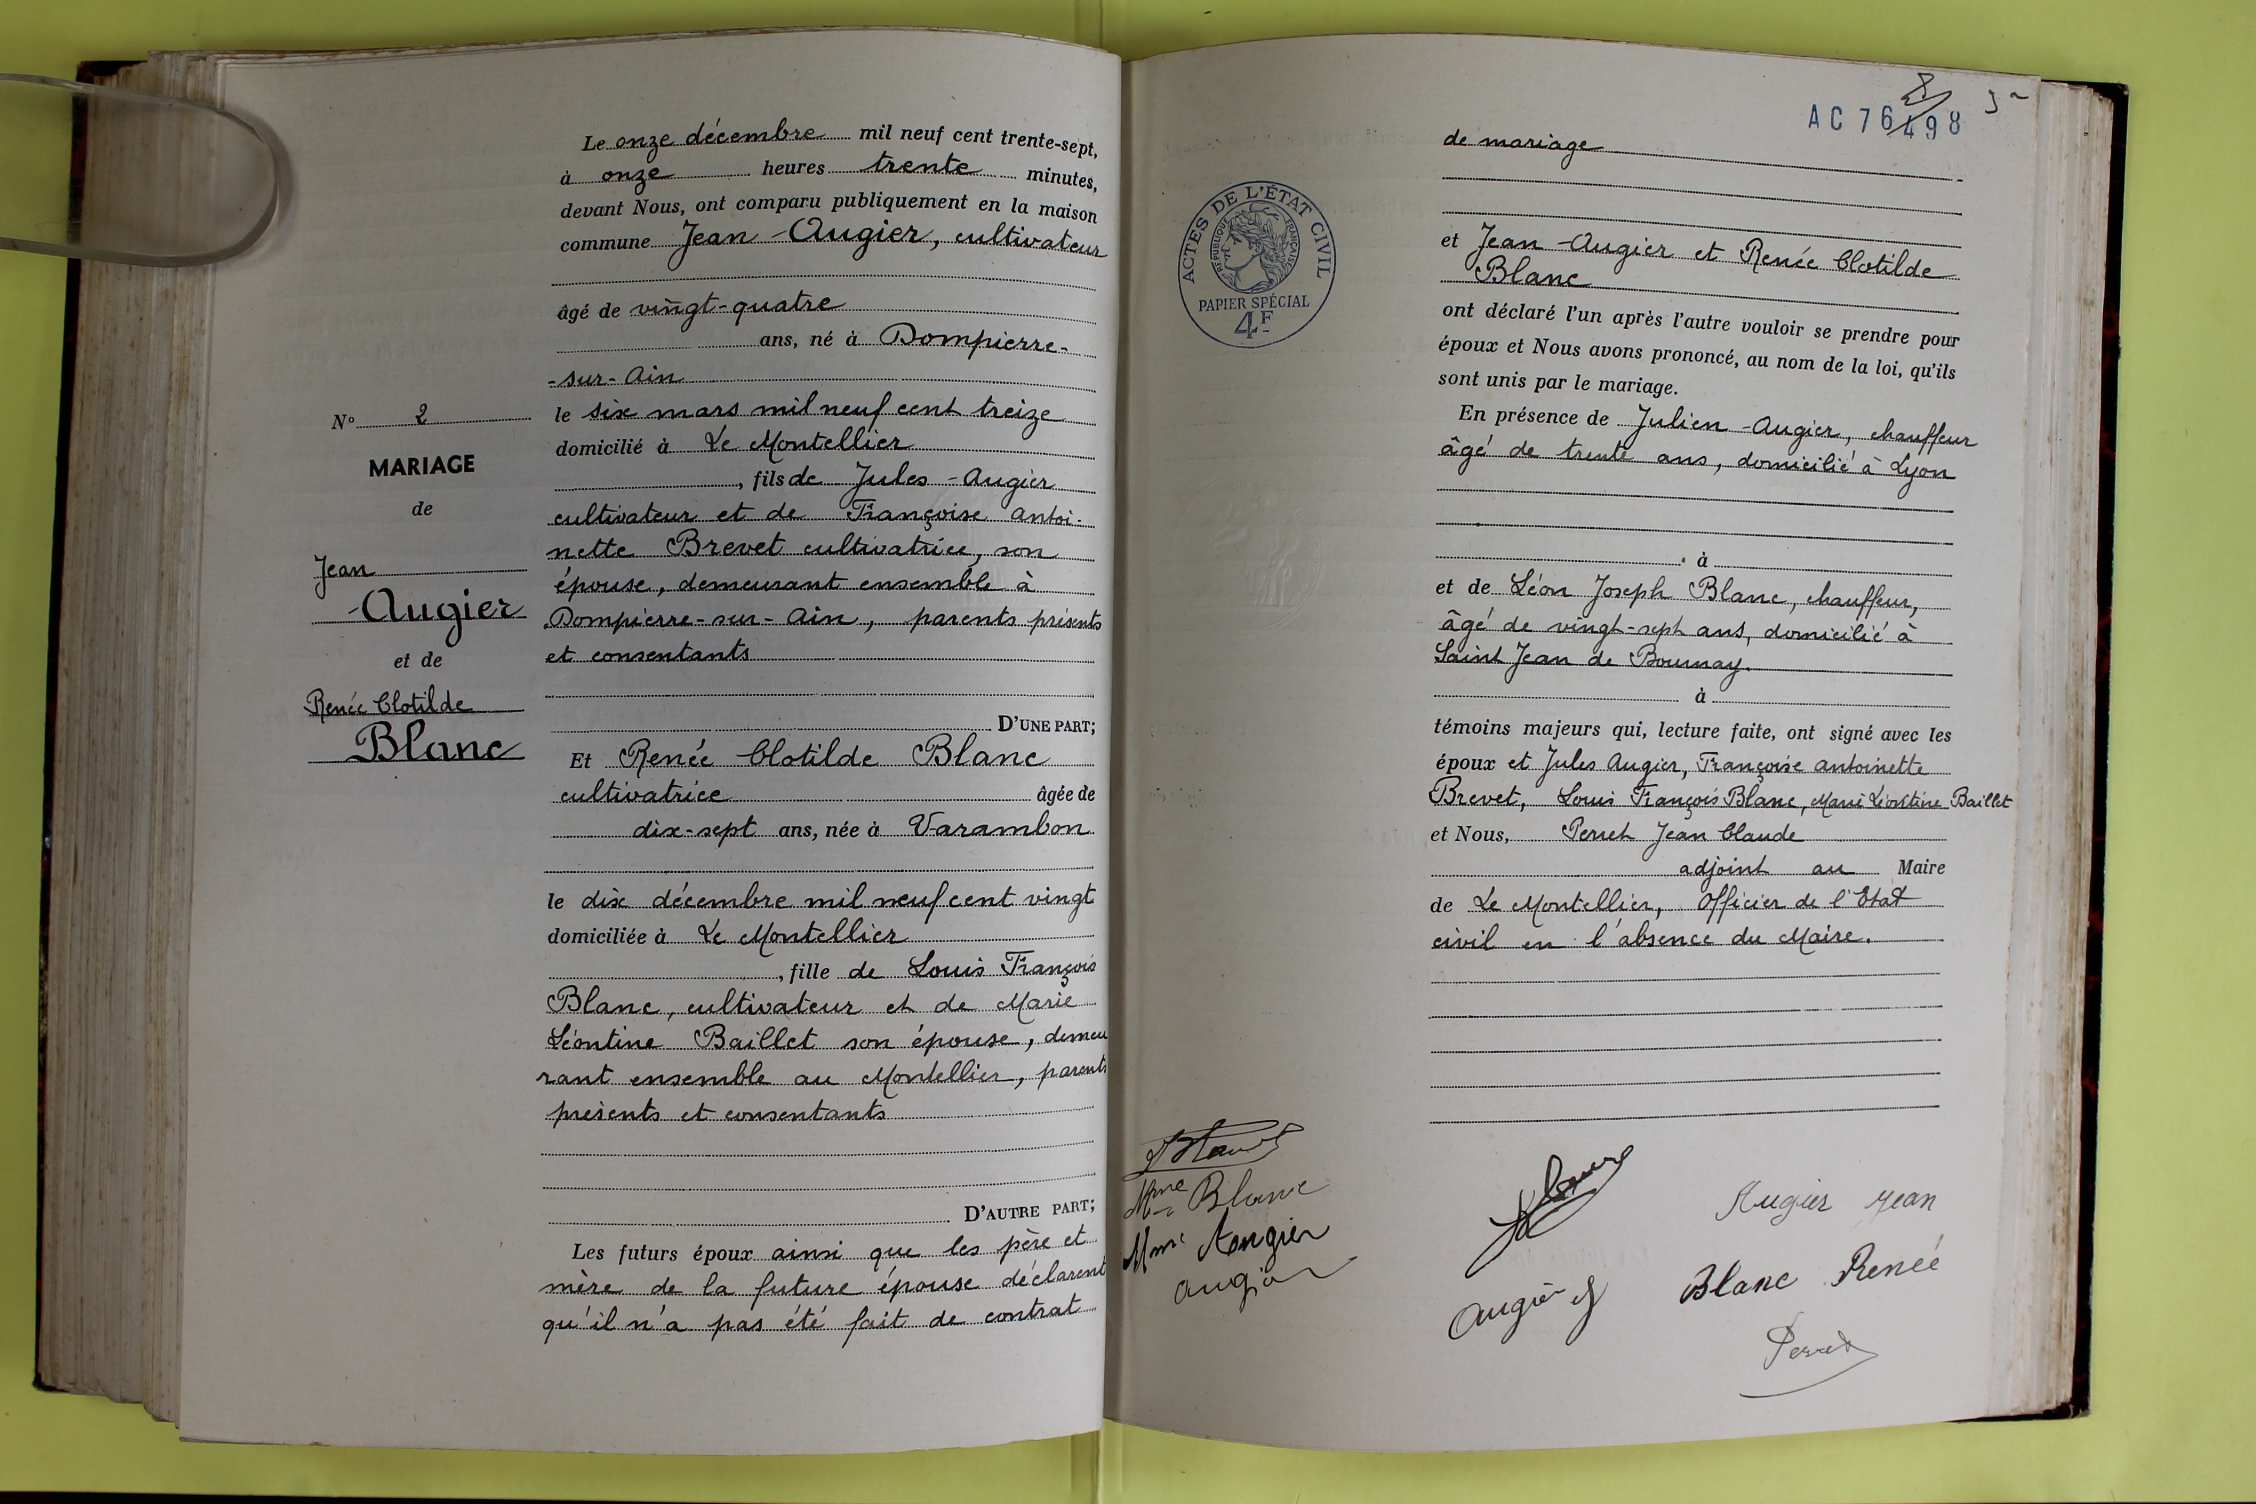 N° 2
MARIAGE
de
Jean
Augier
et de
Renée Clotilde
Blanc
Le onze décembre mil neuf cent trente-sept,
à onze heures trente minutes,
devant Nous, ont comparu publiquement en la maison
commune Jean Augier, cultivateur
âgé de vingt-quatre
ans, né à Dompierre-
-sur-Ain
le six mars mil neuf cent treize
domicilié à Le Montellier
, fils de Jules Augier
cultivateur et de Françoise Antoi-
nette Brevet cultivatrice, son
épouse, demeurant ensemble à
Dompierre-sur-Ain, parents présents
et consentants
D'UNE PART;
Et Renée Clotilde Blanc
cultivatrice âgée de
dix-sept ans, née à Varambon
le dix décembre mil neuf cent vingt
domiciliée à Le Montellier
, fille de Louis François
Blanc, cultivateur et de Marie
Léontine Baillet son épouse, demeu
rant ensemble au Montellier, parents
présents et consentants
D'AUTRE PART;
Les futurs époux ainsi que les père et
mère de la future épouse déclarent
qu'il n'a pas été fait de contrat
AC 76498
8
ACTES DE L'ÉTAT CIVIL
RÉPUBLIQUE FRANÇAISE
PAPIER SPÉCIAL
4F
de mariage
et Jean Augier et Renée Clotilde
Blanc
ont déclaré l'un après l'autre vouloir se prendre pour
époux et Nous avons prononcé, au nom de la loi, qu'ils
sont unis par le mariage.
En présence de Julien Augier, chauffeur
âgé de trente ans, domicilié à Lyon
à
et de Léon Joseph Blanc, chauffeur,
âgé de vingt-sept ans, domicilié à
Saint Jean de Bournay.
à
témoins majeurs qui, lecture faite, ont signé avec les
époux et Jules Augier, Françoise Antoinette
Brevet, Louis François Blanc, Marie Léontine Baillet
et Nous, Perret Jean Claude
adjoint au Maire
de Le Montellier, Officier de l'Etat
civil en l'absence du Maire.
Blanc
Mme Blanc
Mme Augier
Augier
Augier Jean
Augier J
Blanc Renée
Perret